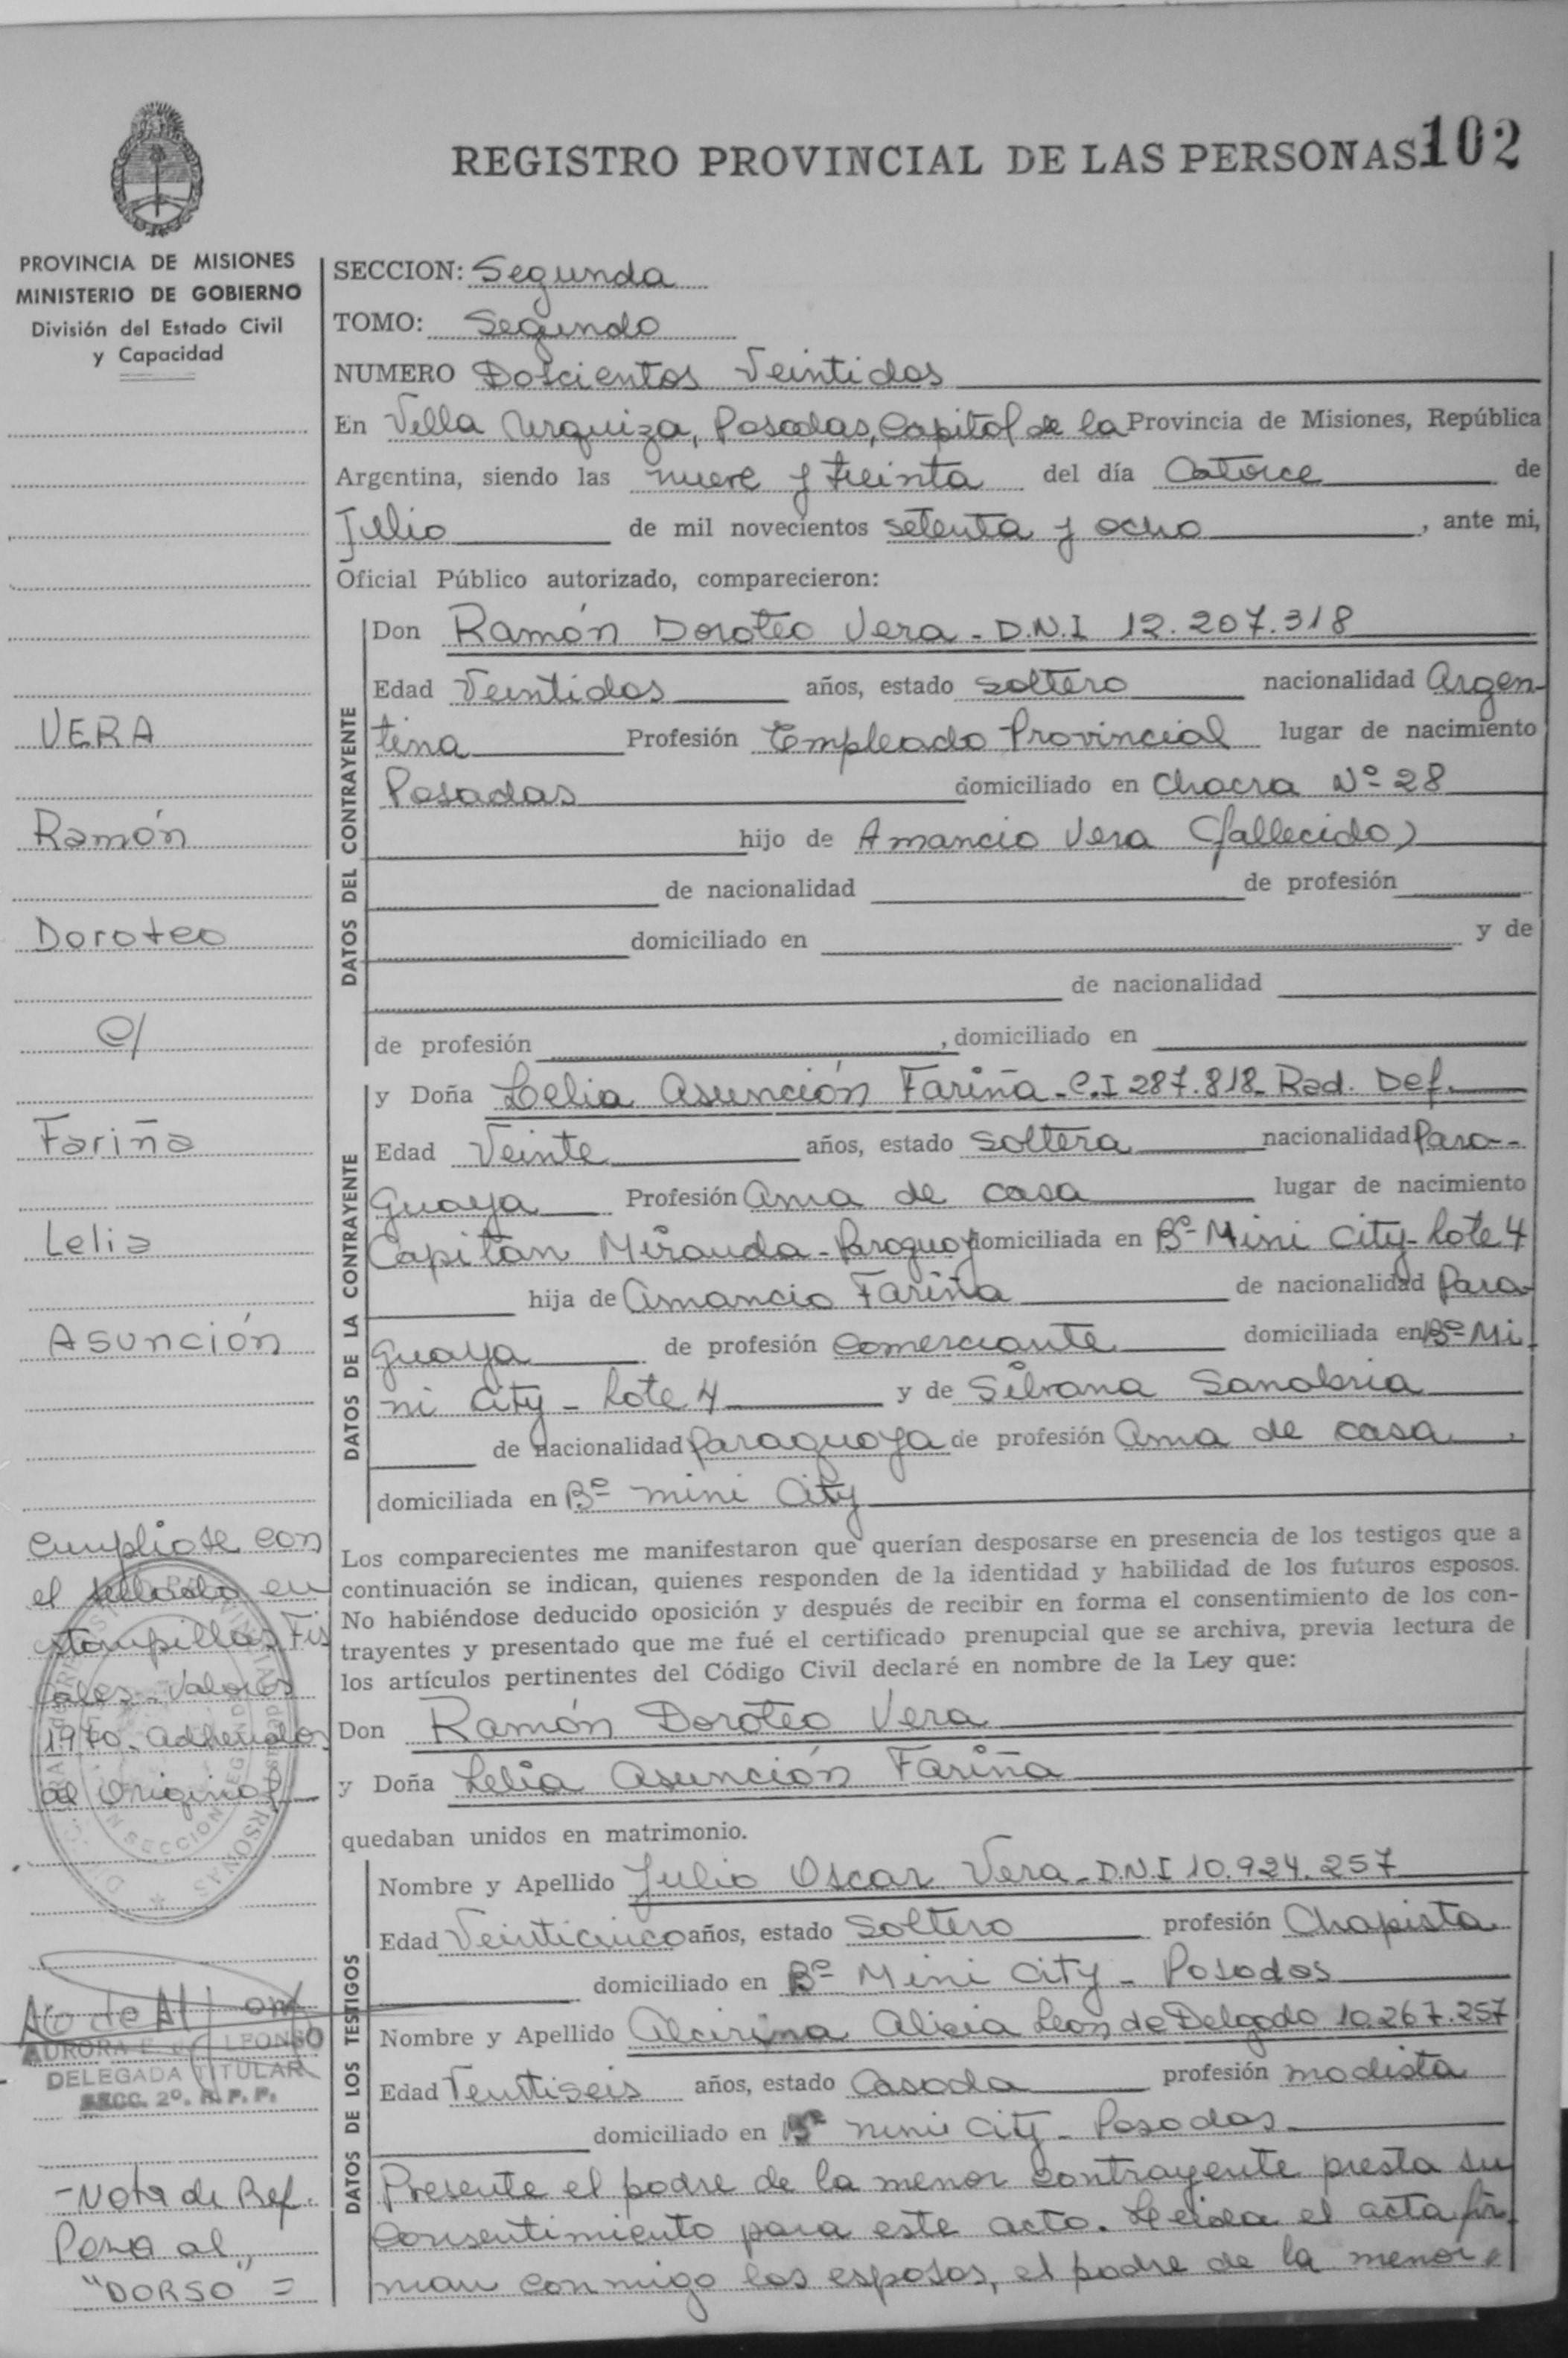 REGISTRO PROVINCIAL DE LAS PERSONAS 102
PROVINCIA DE MISIONES
MINISTERIO DE GOBIERNO
División del Estado Civil
y Capacidad
VERA
Ramón
Doroteo
c/
Fariña
Lelia
Asunción
Cumpliose con
el sellado en
estampillas Fis
cales - Valores
1970 - adheridos
al Original
AURORA E. de ALFONSO
DELEGADA TITULAR
SECC. 2º. R. P. P.
- Nota de Ref.
Pasa al
"DORSO" =
SECCION: Segunda
TOMO: Segundo
NUMERO Doscientos Veintidos
En Villa Urquiza, Posadas, Capital de la Provincia de Misiones, República
Argentina, siendo las nueve y treinta del día Catorce de
Julio de mil novecientos setenta y ocho, ante mi,
Oficial Público autorizado, comparecieron:
DATOS DEL CONTRAYENTE
Don Ramón Doroteo Vera - D.N.I 12.207.318
Edad Veintidos años, estado soltero nacionalidad Argen-
tina Profesión Empleado Provincial lugar de nacimiento
Posadas domiciliado en Chacra Nº 28
hijo de Amancio Vera (fallecido)
de nacionalidad de profesión
domiciliado en y de
de nacionalidad
de profesión , domiciliado en
DATOS DE LA CONTRAYENTE
y Doña Lelia Asunción Fariña - C.I 287.818 - Rad. Def.
Edad Veinte años, estado soltera nacionalidad Para-
guaya Profesión Ama de casa lugar de nacimiento
Capitan Miranda - Paraguay domiciliada en Bº Mini City - Lote 4
hija de Amancio Fariña de nacionalidad Para-
guaya de profesión Comerciante domiciliada en Bº Mi
ni City - Lote 4 y de Silvana Sanabria
de nacionalidad Paraguaya de profesión Ama de casa,
domiciliada en Bº mini City
Los comparecientes me manifestaron que querían desposarse en presencia de los testigos que a
continuación se indican, quienes responden de la identidad y habilidad de los futuros esposos.
No habiéndose deducido oposición y después de recibir en forma el consentimiento de los con-
trayentes y presentado que me fué el certificado prenupcial que se archiva, previa lectura de
los artículos pertinentes del Código Civil declaré en nombre de la Ley que:
Don Ramón Doroteo Vera
y Doña Lelia Asunción Fariña
quedaban unidos en matrimonio.
DATOS DE LOS TESTIGOS
Nombre y Apellido Julio Oscar Vera - D.N.I 10.924.257
Edad Veinticinco años, estado Soltero profesión Chapista
domiciliado en Bº Mini City - Posadas
Nombre y Apellido Alcirina Alicia Leon de Delgado 10.267.257
Edad Ventiseis años, estado Casada profesión modista
domiciliado en Bº mini City - Posadas
Presente el padre de la menor contrayente presta su
Consentimiento para este acto. Leida el acta fir
man conmigo los esposos, el padre de la menor